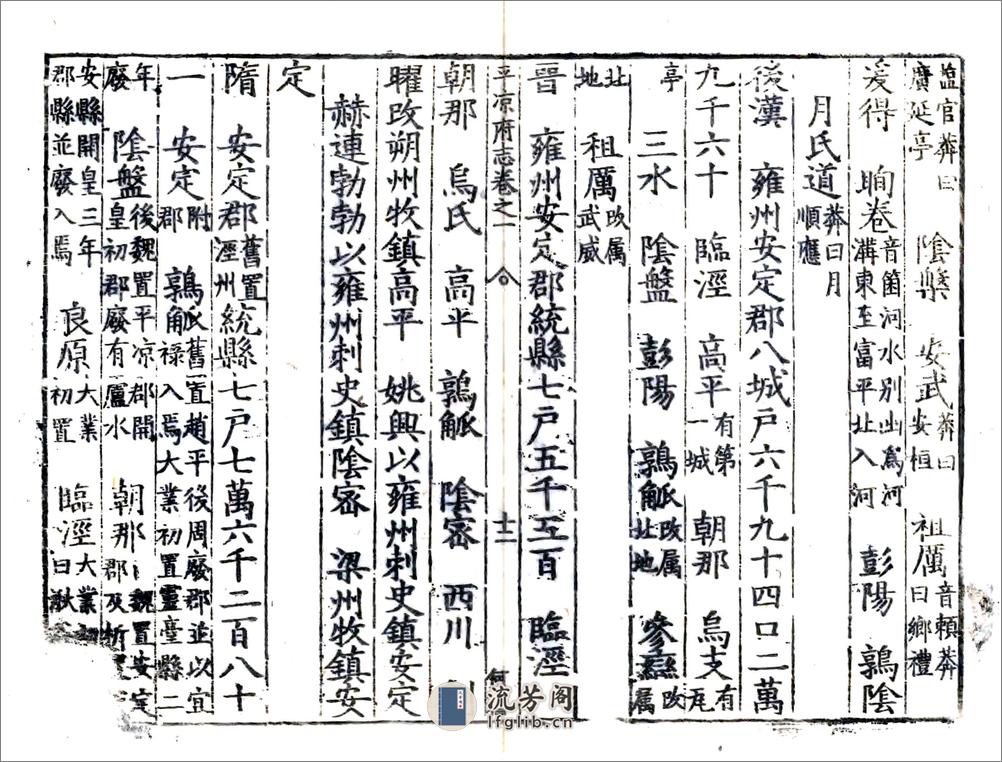 鹽官莽曰廣延亭 陰槃 安武莽曰安桓 祖厲音賴莽曰鄉禮
爰得 眴卷音箇河水別出為河溝東至富平北入河 彭陽 鶉陰
月氏道莽曰月順應
後漢 雍州安定郡八城戶六千九十四口二萬
九千六十 臨涇 高平有第一城 朝那 烏支有瓦
亭 三水 陰盤 彭陽 鶉觚改属北地 參䜌改属
北地 租厲改属武威
晉 雍州安定郡統縣七戶五千五百 臨涇
平凉府志卷之一 十二
朝那 烏氏 高平 鶉觚 陰密 西川
曜改朔州牧鎮高平 姚興以雍州刺史鎮安定
赫連勃勃以雍州刺史鎮陰密 梁州牧鎮安
定
隋 安定郡舊置涇州統縣七戶七萬六千二百八十
一 安定附郡 鶉觚舊置趙平郡後周廢郡並以宜祿入焉大業初置靈臺縣二
年廢 陰盤後魏置平凉郡開皇初郡廢有盧水 朝那魏置安定郡及析
安縣開皇三年郡縣並廢入焉 良原大業初置 臨涇大業初曰湫
流芳阁
lfglib.cn